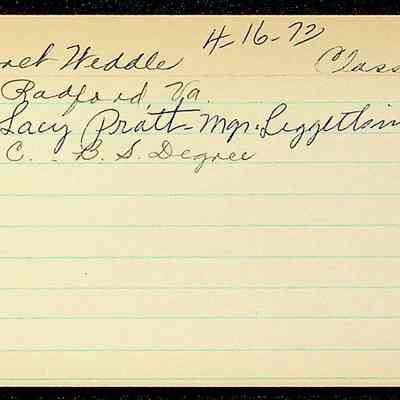 ret Weddle 4-16-73 Class
Radford, Va.
Lacy Pratt - Mgr. Leggett in
C. B. S. Degree